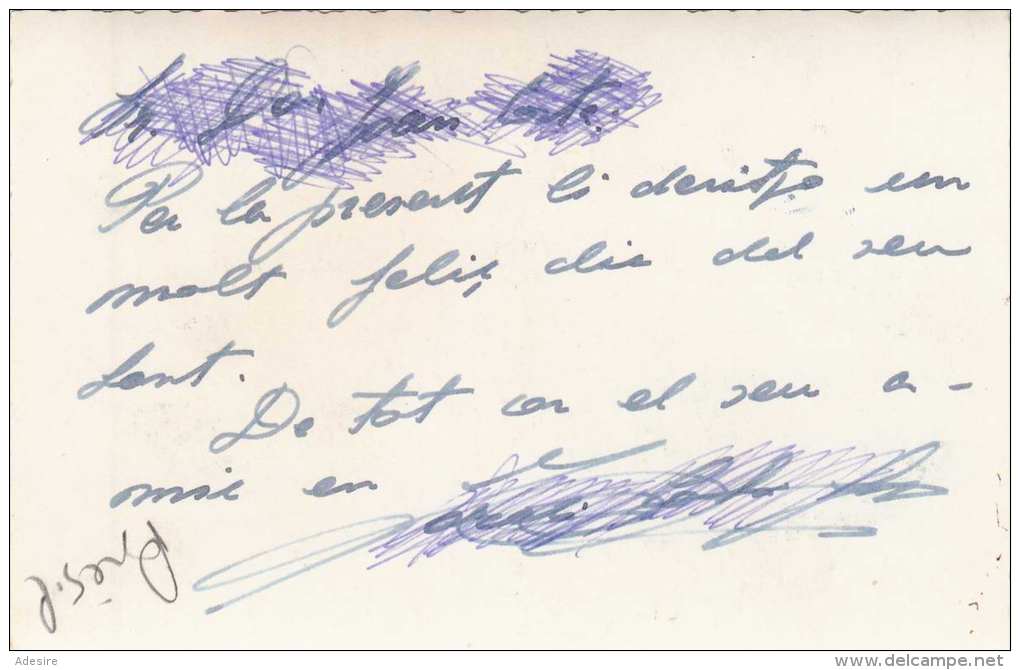 Per la present li desitjo un
molt feliç dia del seu
Sant.
De tot cor el seu a-
mic en
Adesire
www.delcampe.net